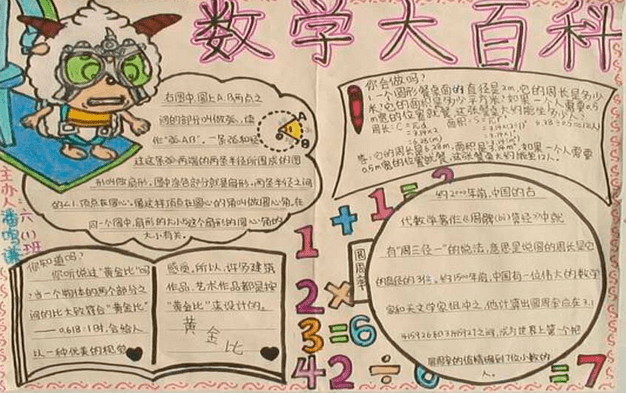 数学大百科
右图中,圆上A、B两点之
间的部分叫做弧,读
作“弧AB”,一条弧和经
过这条弧两端的两条半径所围成的图
形叫做扇形。图中涂色部分就是扇形。两条半径之间
的∠1,顶点在圆心。像这样顶点在圆心的角叫做圆心角。在
同一个圆中,扇形的大小与这个扇形的圆心角的
大小有关。
A
B
你会做吗?
1.一个圆形餐桌面的直径是2m,它的周长是多少
米?它的面积是多少平方米?如果一个人需要0.5
m宽的位置就餐,这张餐桌大约能坐多少人?
周长:C=πd
答:它的周长是6.28m,面积是3.14m²,如果一个人需要
0.5m宽的位置就餐,这张餐桌大约能坐12人。
主办人:
六(1)班
你知道吗?
你听说过“黄金比”吗
?当一个物体的两个部分之
间的比大致符合“黄金比”
——0.618:1时,会给人
以一种优美的视觉
感受。所以,许多建筑
作品、艺术作品都是按
“黄金比”来设计的。
黄金比
圆周率
约2000年前,中国的古
代数学著作《周髀算经》中就
有“周三径一”的说法,意思是说圆的周长是它
的直径的3倍。约1500年前,中国有一位伟大的数学
家和天文学家祖冲之。他计算出圆周率应在3.1
415926和3.1415927之间,成为世界上第一个把
圆周率的值精确到7位小数的
人。
1+1=2
2×
3=6
42÷6=7